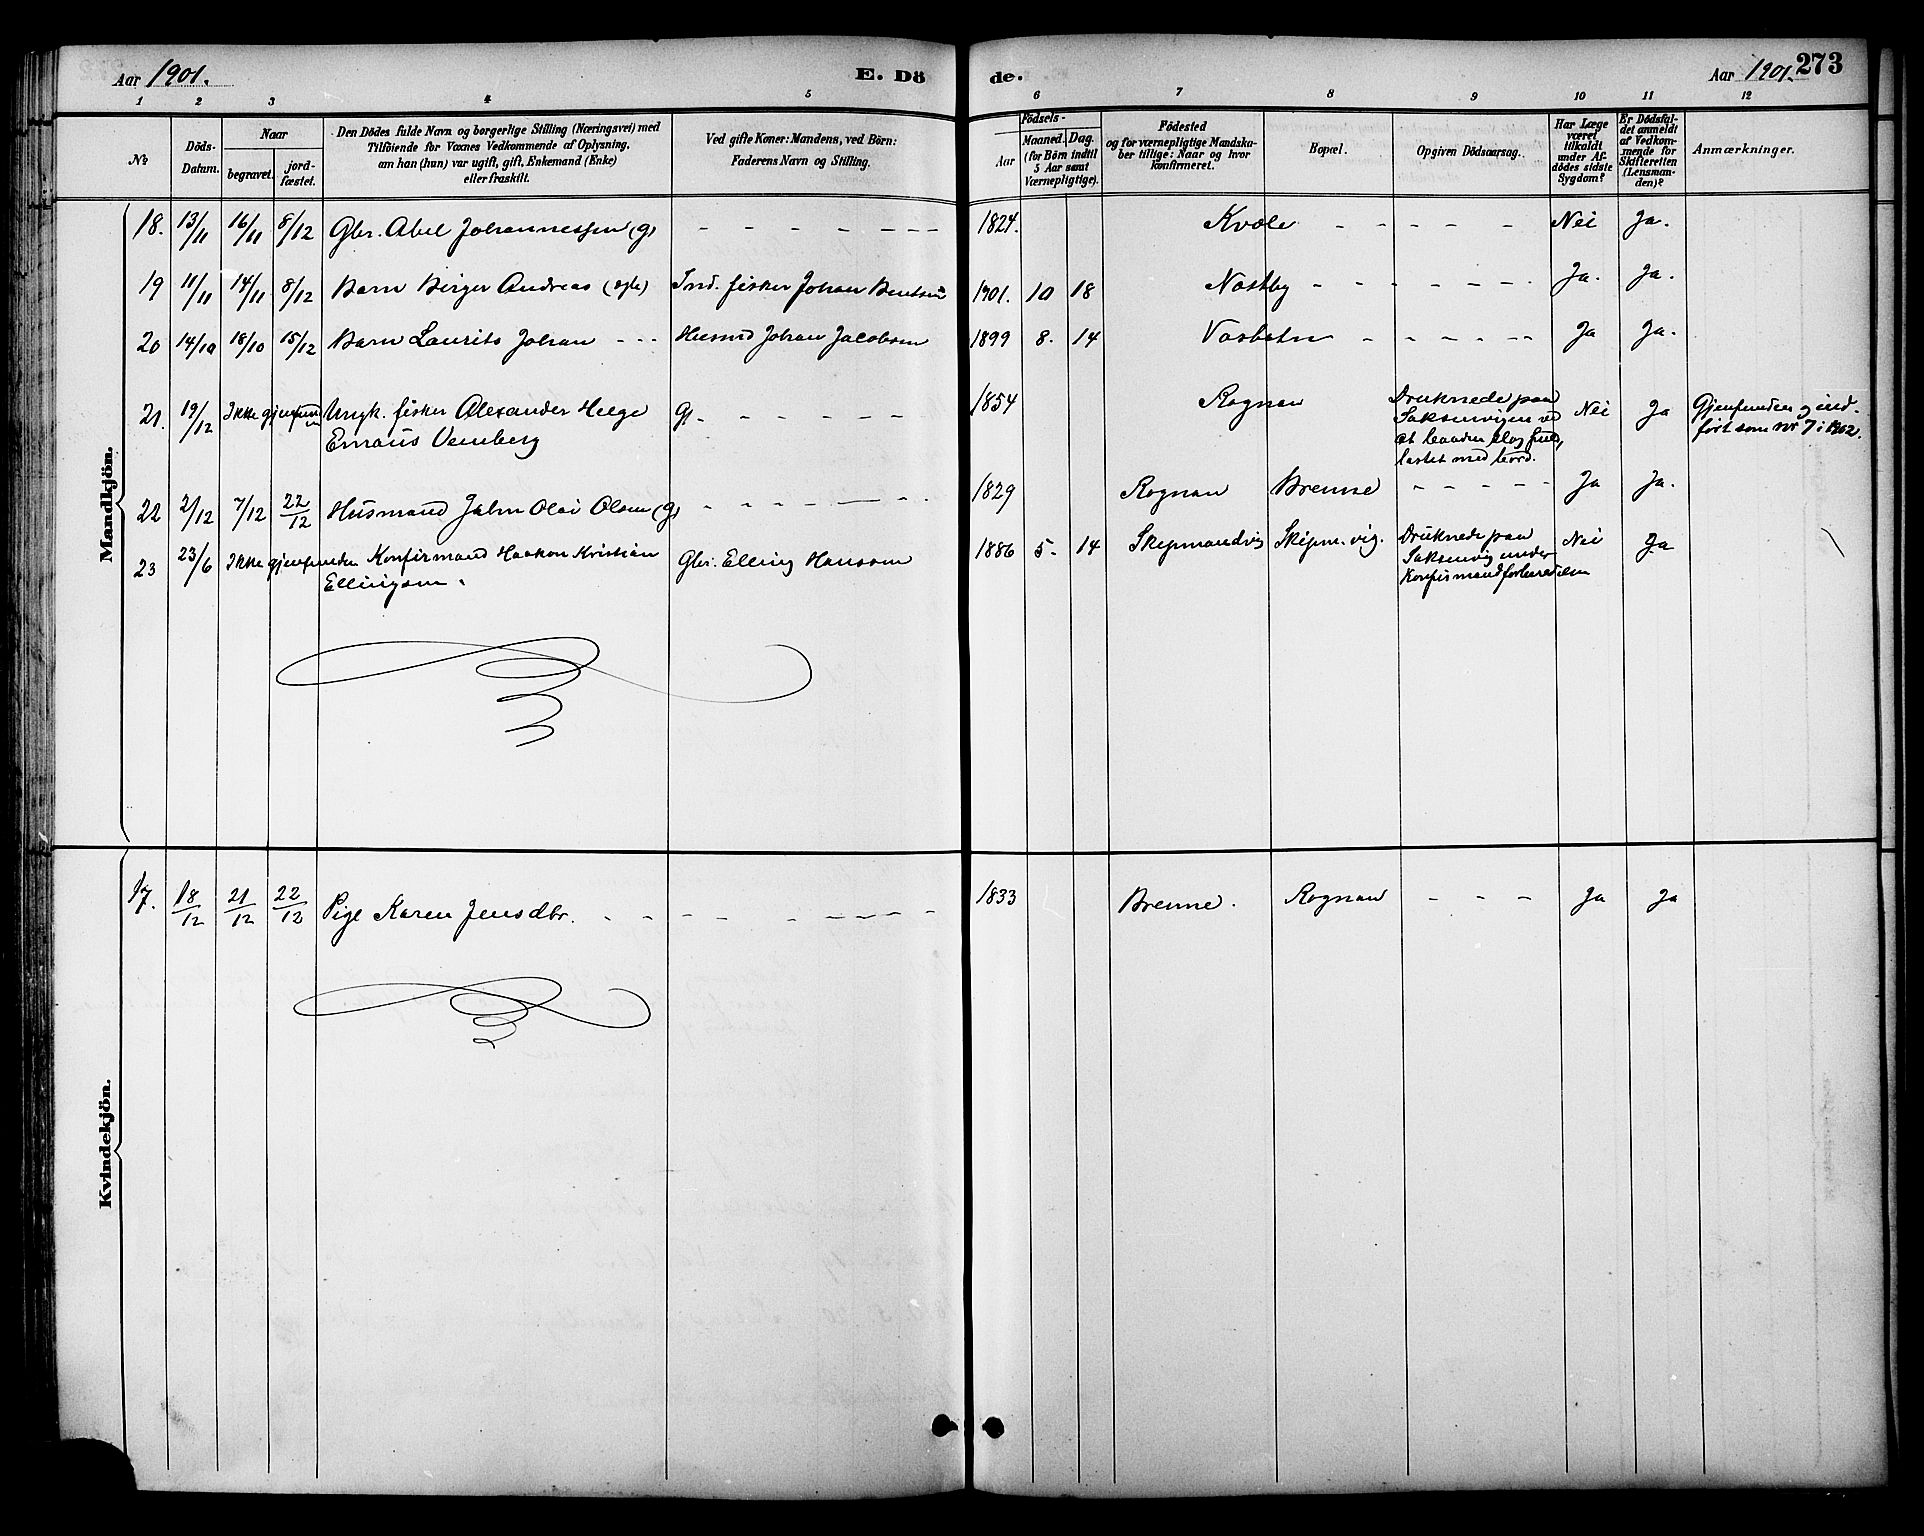 Aar 1901.
E. Dö
de.
Aar 1901.
273
1 2 3 4 5 6 7 8 9 10 11 12
№
Döds-
Datum.
Naar
begravet.
jord-
fæstet.
Den Dödes fulde Navn og borgerlige Stilling (Næringsvei) med
Tilföiende for Voxnes Vedkommende af Oplysning,
om han (hun) var ugift, gift, Enkemand (Enke)
eller fraskilt.
Ved gifte Koner: Mandens, ved Börn:
Faderens Navn og Stilling.
Födsels-
Aar
Maaned. Dag.
(for Börn indtil
5 Aar samt
Værnepligtige).
Födested
og for værnepligtige Mandska-
ber tillige: Naar og hvor
konfirmeret.
Bopæl.
Opgiven Dödsaarsag.
Har Læge
været
tilkaldt
under Af-
dödes sidste
Sygdom?
Er Dödsfal-
det anmeldt
af Vedkom-
mende for
Skifteretten
(Lensman-
den)?
Anmærkninger.
Mandkjön.
18. 13/11 16/11 8/12 Gbr. Abel Johannessen (g) - - - - - - - - 1824. Kvæle - - - - - Nei Ja.
19 11/11 14/11 8/12 Barn Birger Andreas (egte) Ind. fisker Johan Bentsen 1901. 10 18 Nostby - - - - - - Ja. Ja.
20 14/10 18/10 15/12 Barn Laurits Johan - - - Husmd Johan Jacobsen 1899 8. 14 Vasbotn - - - - - Ja Ja.
21. 19/12 Ikke gjenfunden Ungk. fisker Alexander Helge G. - - - - - - 1854 Rognan Druknede paa Nei Ja Gjenfunden og ind-
Emaus Vemberg Saksenvigen ved ført som nr 7 i 1902.
at baaden slog fuld,
lastet med bord.
22 2/12 7/12 22/12 Husmand John Olai Olsen (g) - - - - - - - 1829 Rognan Brenne - - - - - Ja Ja.
23 23/6 Ikke gjenfunden Konfirmand Haakon Kristian Gbr. Elling Hansen 1886 5. 14 Skipmandvig Skipm. vig. Druknede paa Nei Ja
Ellingsen. Saksenvig under
Konfirmandforberedelsen
Kvindekjön.
17. 18/12 21/12 22/12 Pige Karen Jensdtr. - - - - - - - - - 1833 Brenne. Rognan - - - Ja Ja